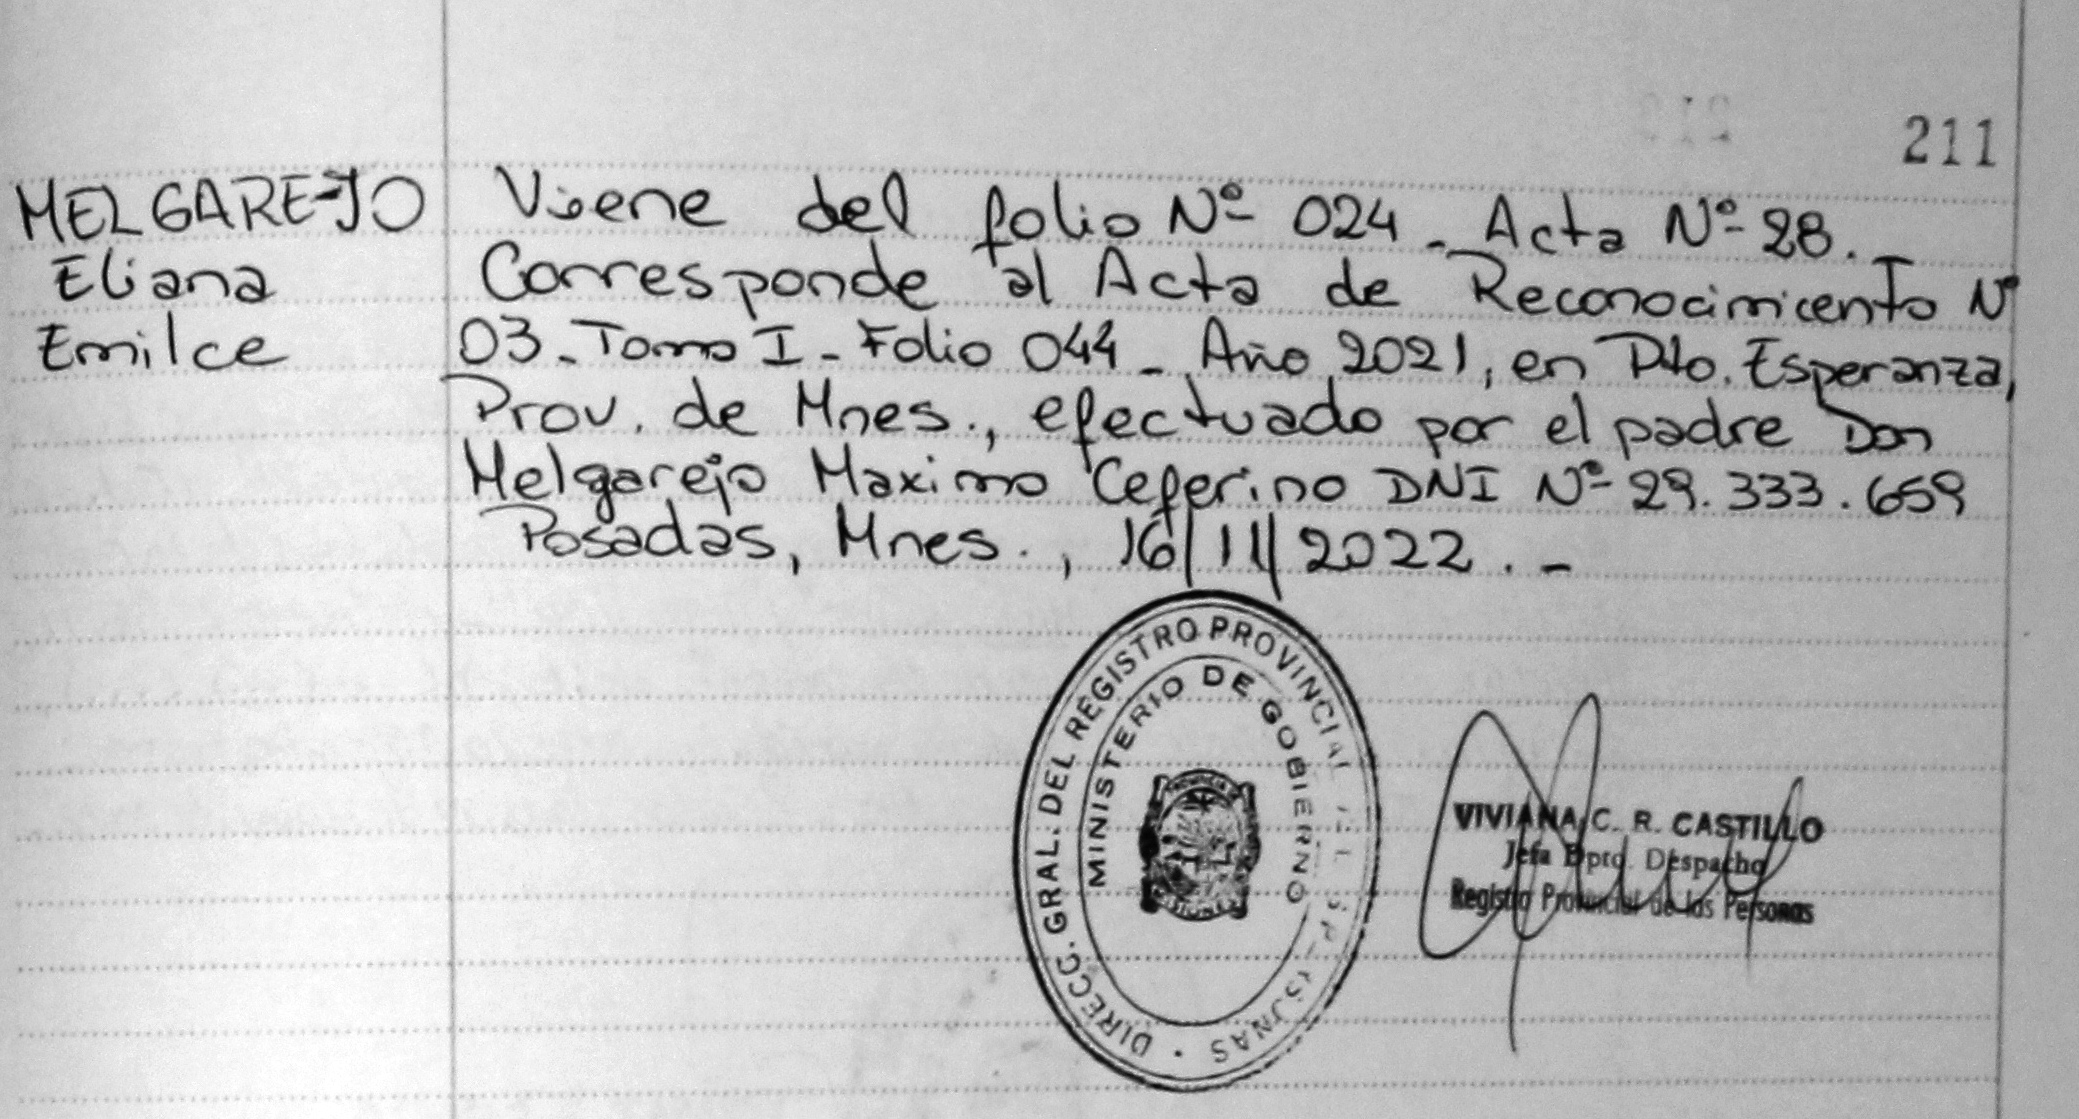 211
MELGAREJO
Eliana
Emilce
Viene del folio Nº 024 - Acta Nº 28.
Corresponde al Acta de Reconocimiento Nº
03 - Tomo I - Folio 044 - Año 2021, en Pto. Esperanza,
Prov. de Mnes., efectuado por el padre Don
Melgarejo Maximo Ceferino DNI Nº 29.333.659
Posadas, Mnes., 16/11/2022.-
DIRECC. GRAL. DEL REGISTRO PROVINCIAL
MINISTERIO DE GOBIERNO
VIVIANA C. R. CASTILLO
Jefa Dpto. Despacho
Registro Provincial de las Personas